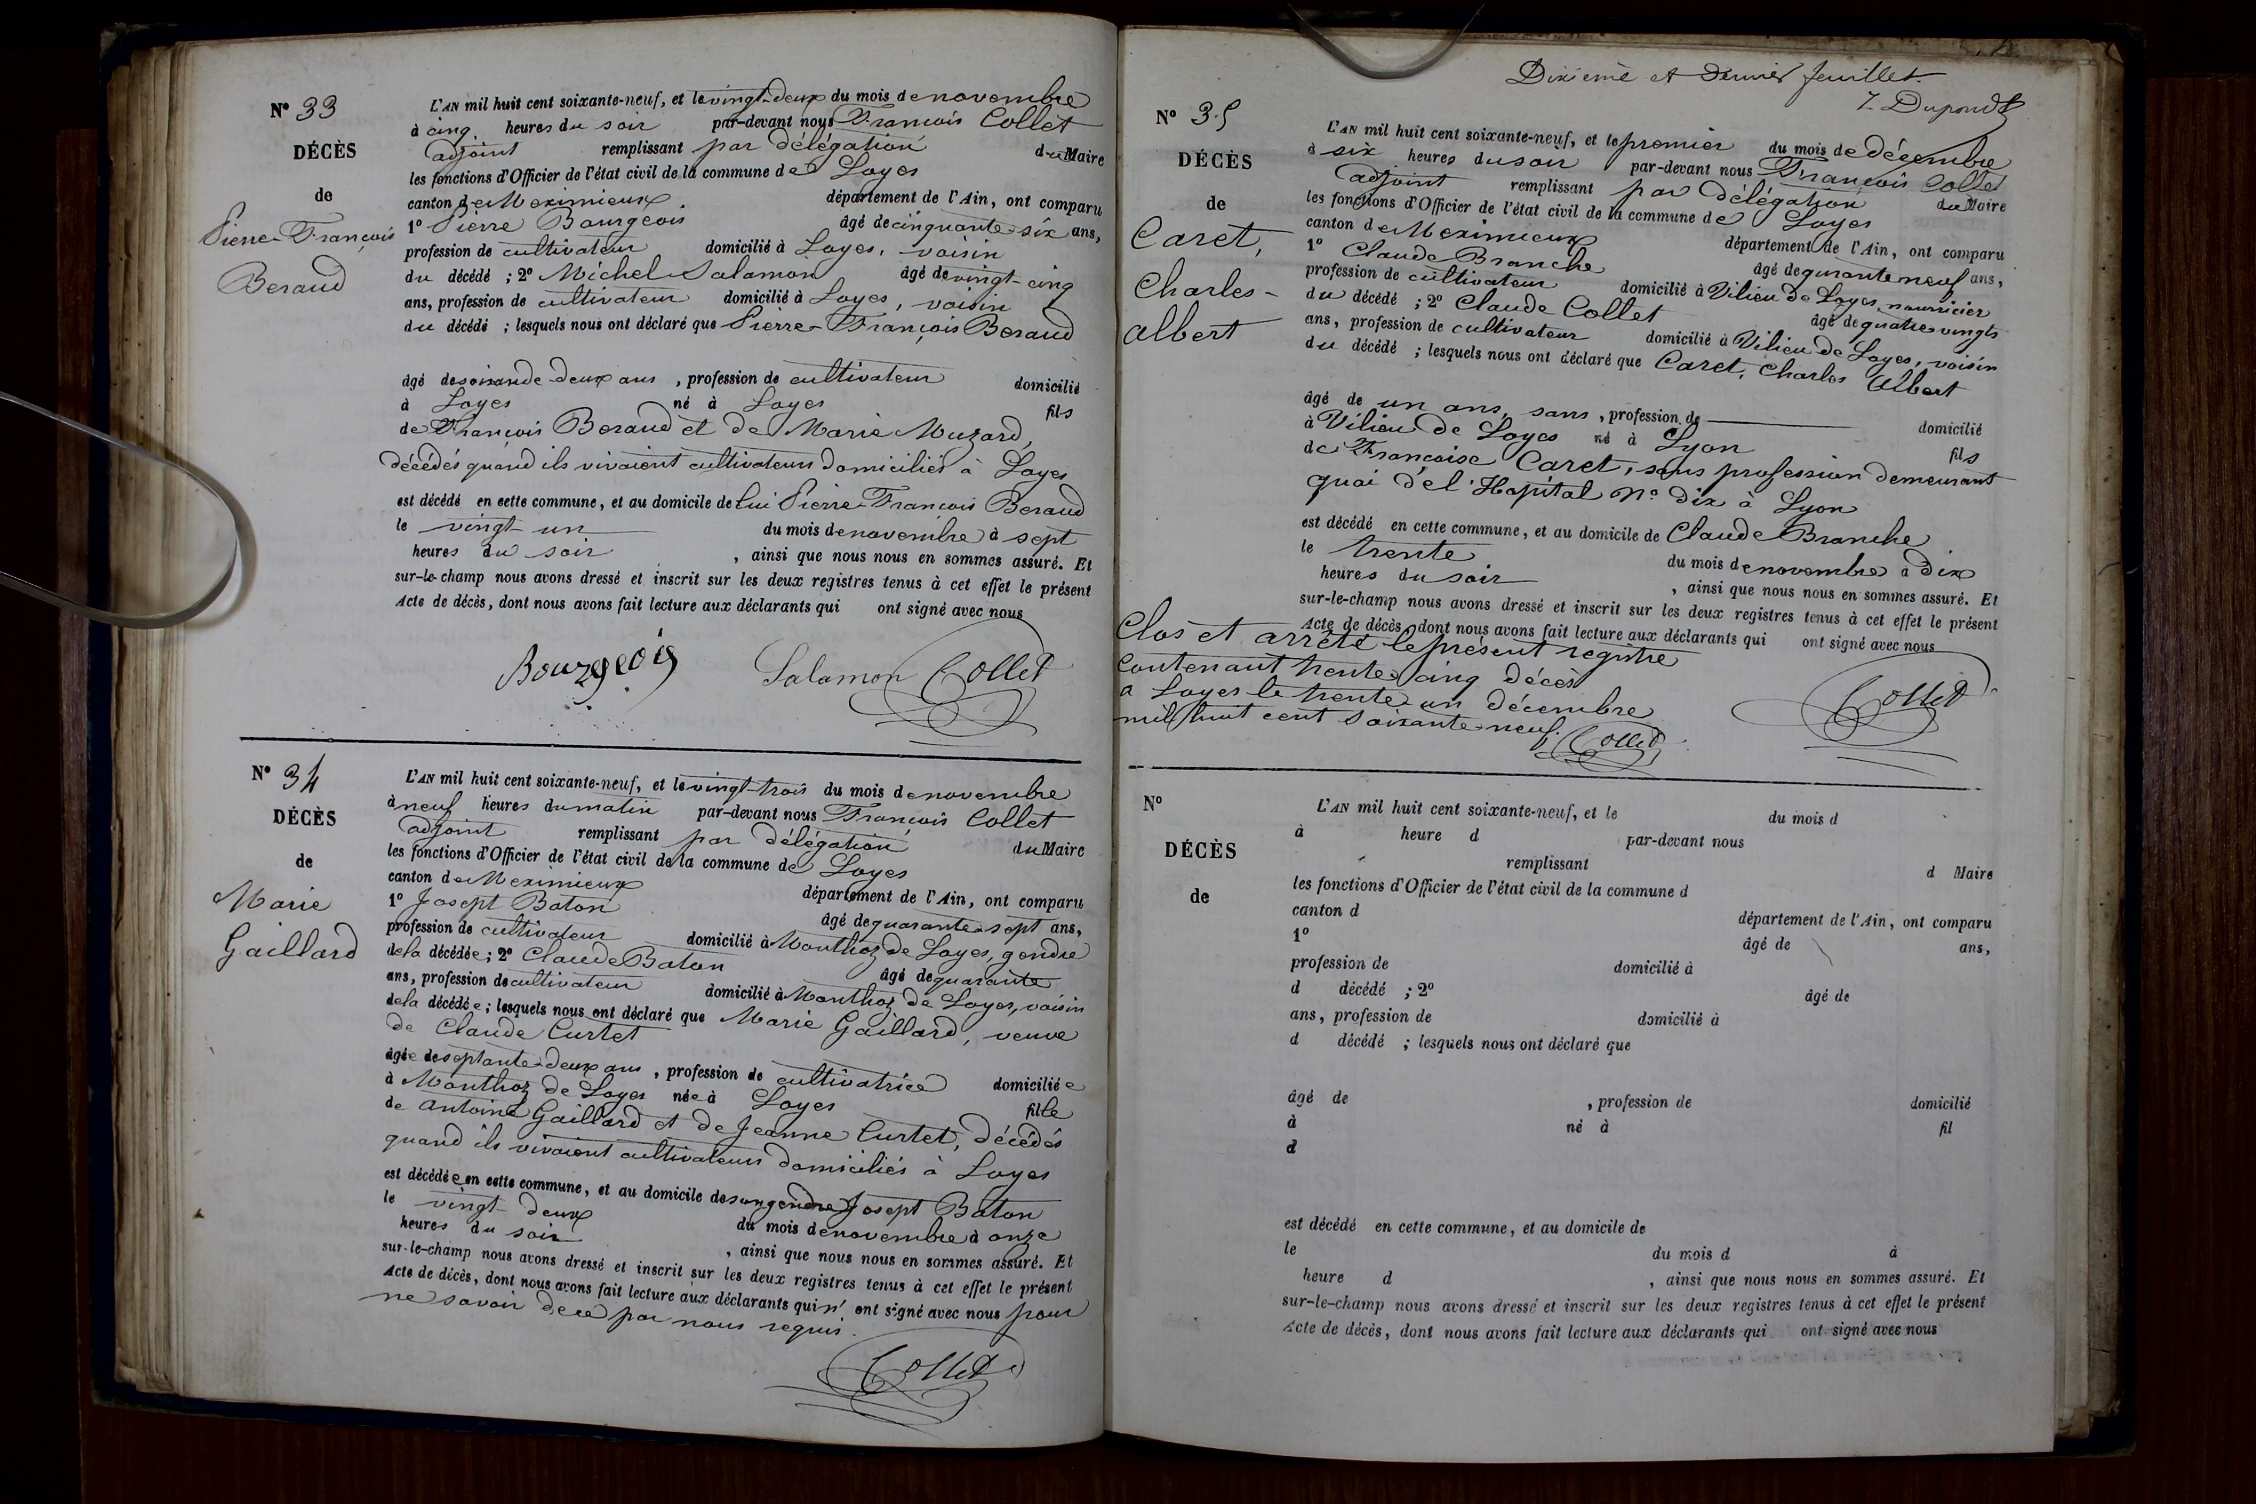 N° 33
DÉCÈS
de
Pierre-François
Beraud
L'AN mil huit cent soixante-neuf, et le vingt-deux du mois de novembre
à cinq heures du soir par-devant nous François Collet
adjoint remplissant par délégation du Maire
les fonctions d'Officier de l'état civil de la commune de Loyes
canton de Meximieux département de l'Ain, ont comparu
1° Pierre Bourgeois âgé de cinquante-six ans,
profession de cultivateur domicilié à Loyes, voisin
du décédé ; 2° Michel Salamon âgé de vingt-cinq
ans, profession de cultivateur domicilié à Loyes, voisin
du décédé ; lesquels nous ont déclaré que Pierre-François Beraud
âgé de soixande-deux ans, profession de cultivateur domicilié
à Loyes né à Loyes fils
de François Beraud et de Marie Muzard,
décédés quand ils vivaient cultivateurs domiciliés à Loyes
est décédé en cette commune, et au domicile de lui Pierre-François Beraud
le vingt-un du mois de novembre à sept
heures du soir, ainsi que nous nous en sommes assuré. Et
sur-le-champ nous avons dressé et inscrit sur les deux registres tenus à cet effet le présent
Acte de décès, dont nous avons fait lecture aux déclarants qui ont signé avec nous
Bourgeois Salamon Collet
N° 34
DÉCÈS
de
Marie
Gaillard
L'AN mil huit cent soixante-neuf, et le vingt-trois du mois de novembre
à neuf heures du matin par-devant nous François Collet
adjoint remplissant par délégation du Maire
les fonctions d'Officier de l'état civil de la commune de Loyes
canton de Meximieux département de l'Ain, ont comparu
1° Josept Baton âgé de quarante-sept ans,
profession de cultivateur domicilié à Monthoz de Loyes, gendre
de la décédée ; 2° Claude Baton âgé de quarante
ans, profession de cultivateur domicilié à Monthoz de Loyes, voisin
de la décédée ; lesquels nous ont déclaré que Marie Gaillard, veuve
de Claude Curtet
âgée de septante-deux ans, profession de cultivatrice domiciliée
à Monthoz de Loyes née à Loyes fille
de Antoine Gaillard et de Jeanne Curtet, décédés
quand ils vivaient cultivateurs domiciliés à Loyes
est décédée en cette commune, et au domicile de son gendre Josept Baton
le vingt-deux du mois de novembre à onze
heures du soir, ainsi que nous nous en sommes assuré. Et
sur-le-champ nous avons dressé et inscrit sur les deux registres tenus à cet effet le présent
Acte de décès, dont nous avons fait lecture aux déclarants qui n' ont signé avec nous pour
ne savoir de ce par nous requis.
Collet
Dixième et dernier feuillet.
Dupond
N° 35
DÉCÈS
de
Caret,
Charles-
Albert
L'AN mil huit cent soixante-neuf, et le premier du mois de décembre
à six heures du soir par-devant nous François Collet
adjoint remplissant par délégation du Maire
les fonctions d'Officier de l'état civil de la commune de Loyes
canton de Meximieux département de l'Ain, ont comparu
1° Claude Branche âgé de quarante neuf ans,
profession de cultivateur domicilié à Vilieu de Loyes, nourricier
du décédé ; 2° Claude Collet âgé de quatre vingts
ans, profession de cultivateur domicilié à Vilieu de Loyes, voisin
du décédé ; lesquels nous ont déclaré que Caret, Charles Albert
âgé de un ans, sans, profession de domicilié
à Vilieu de Loyes né à Lyon fils
de Francoise Caret, sans profession demeurant
quai de l'Hapital N° dix à Lyon
est décédé en cette commune, et au domicile de Claude Branche
le trente du mois de novembre à dix
heures du soir, ainsi que nous nous en sommes assuré. Et
sur-le-champ nous avons dressé et inscrit sur les deux registres tenus à cet effet le présent
Acte de décès, dont nous avons fait lecture aux déclarants qui ont signé avec nous
Collet
Clos et arrêté le présent registre
contenant trente-cinq décès
a Loyes le trente-un décembre
mil huit cent soixante-neuf.
Collet
N°
DÉCÈS
de
L'AN mil huit cent soixante-neuf, et le du mois d
à heure d par-devant nous
remplissant d Maire
les fonctions d'Officier de l'état civil de la commune d
canton d département de l'Ain, ont comparu
1° âgé de ans,
profession de domicilié à
d décédé ; 2° âgé de
ans, profession de domicilié à
d décédé ; lesquels nous ont déclaré que
âgé de , profession de domicilié
à né à fil
d
est décédé en cette commune, et au domicile de
le du mois d à
heure d , ainsi que nous nous en sommes assuré. Et
sur-le-champ nous avons dressé et inscrit sur les deux registres tenus à cet effet le présent
Acte de décès, dont nous avons fait lecture aux déclarants qui ont signé avec nous